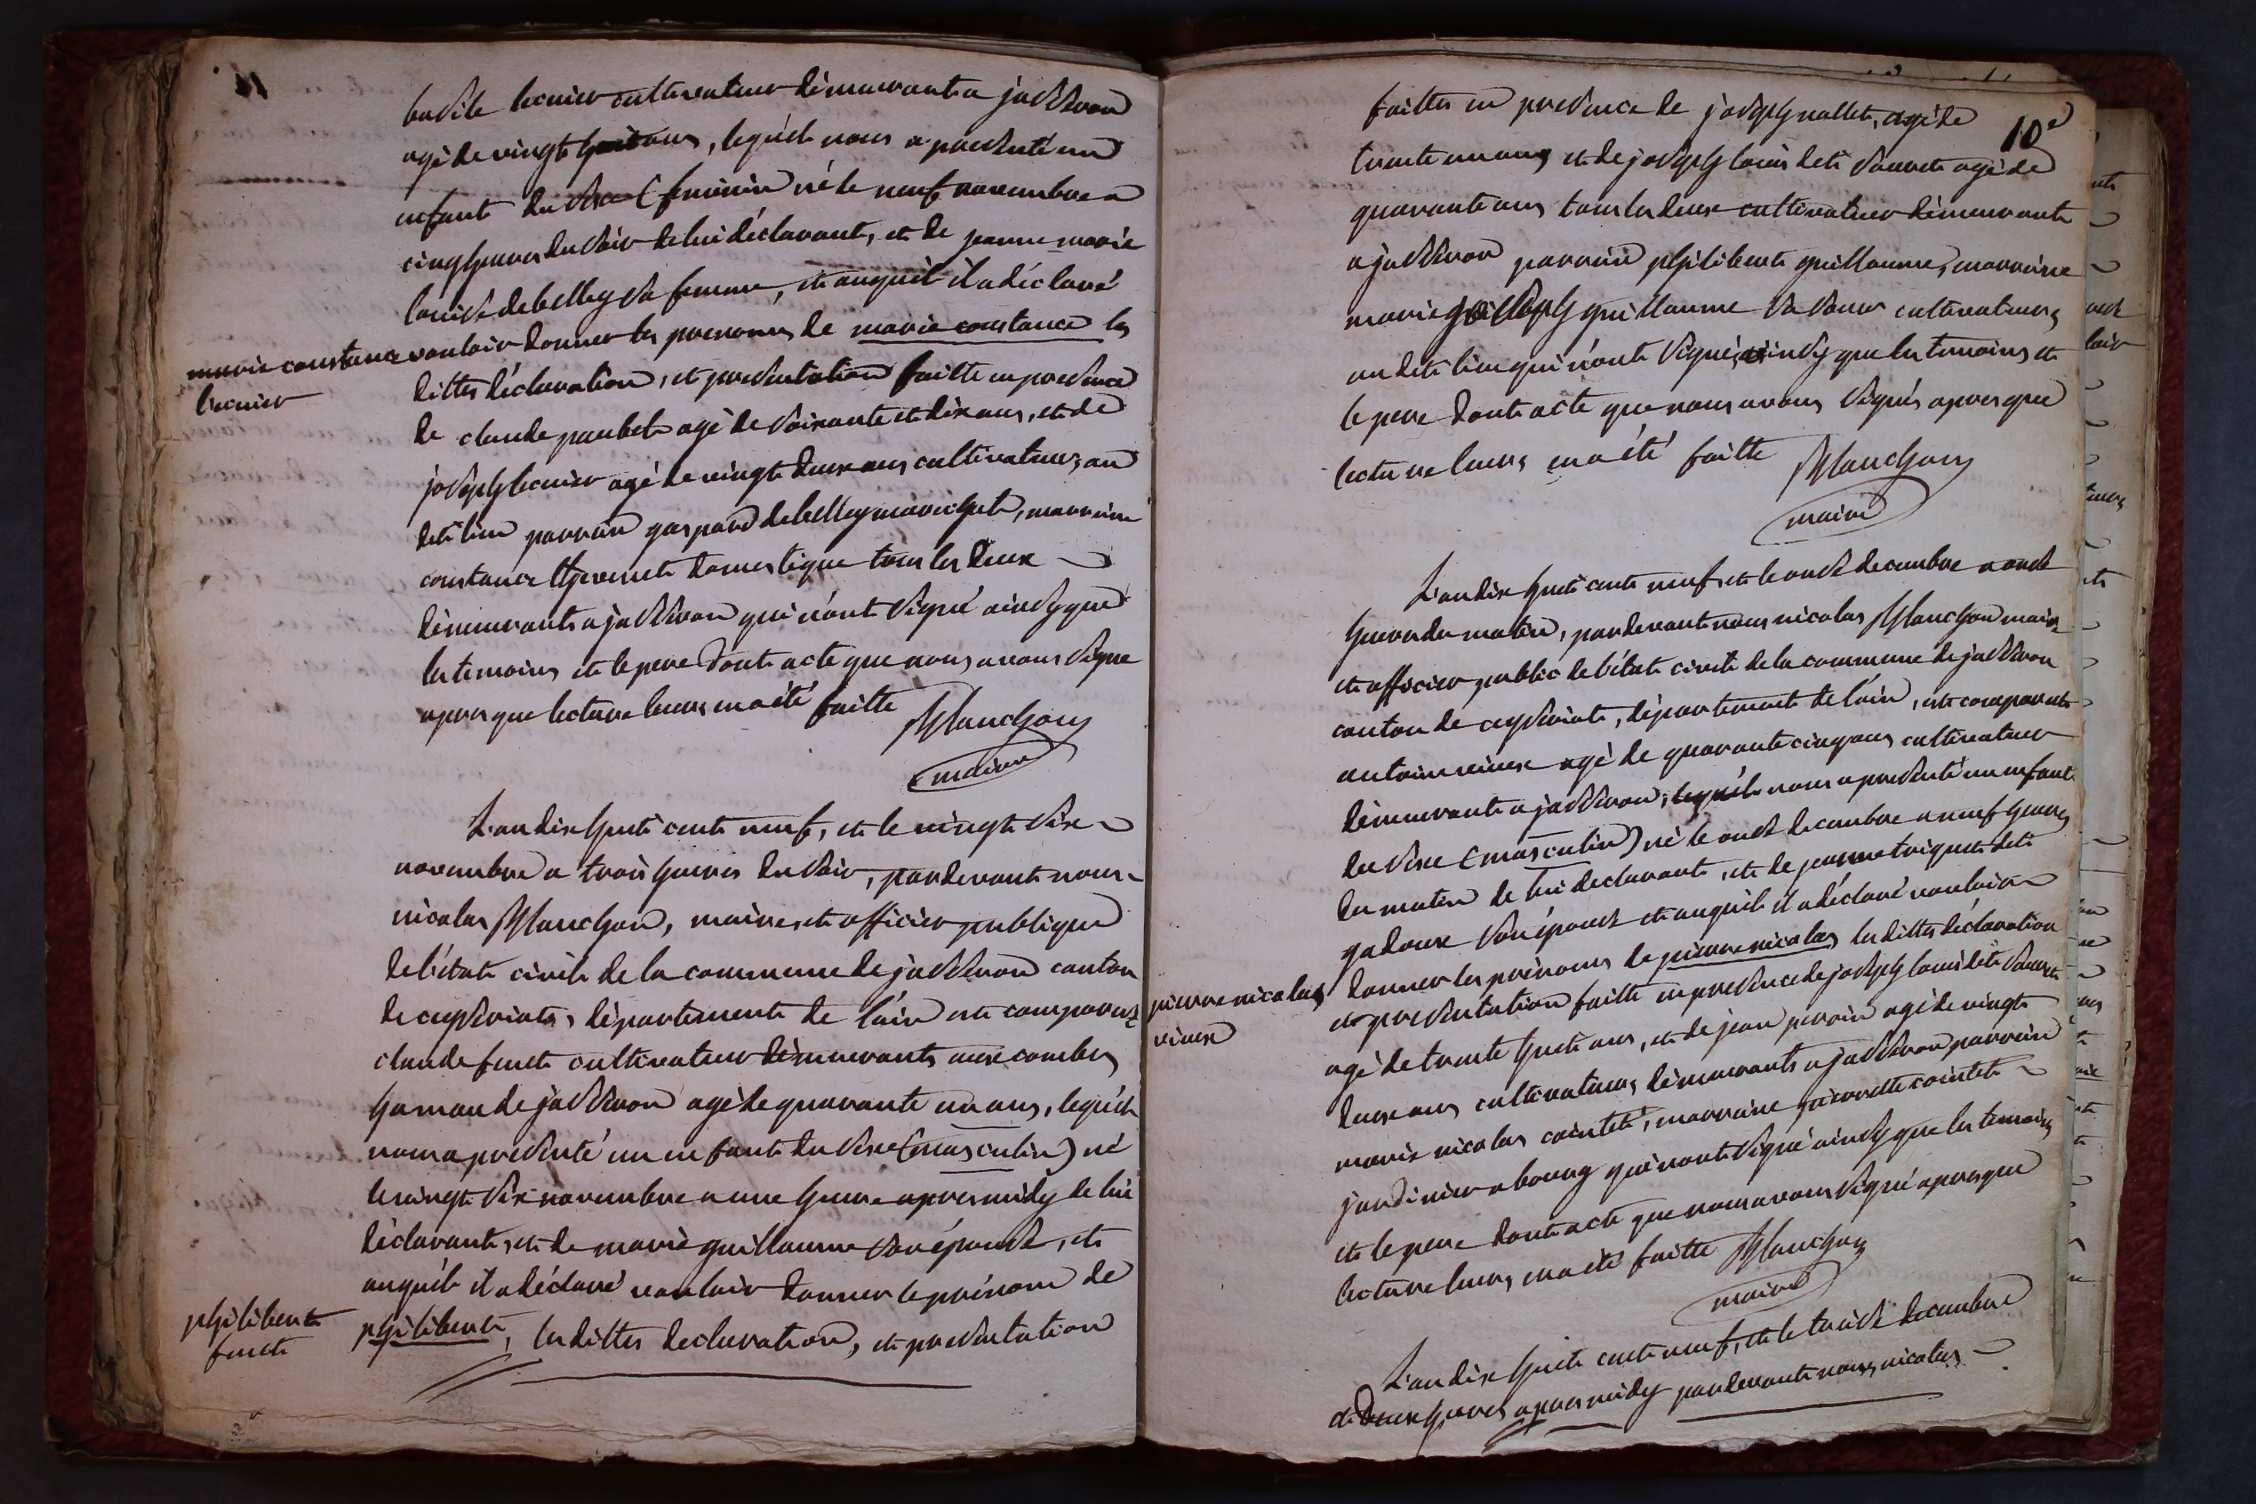 basile lecuier cultivateur démeurant a jasseron
agé de vingt huit ans, lequél nous a presenté un
enfant du sexe (feminin né le neuf novembre a
cinq heures du soir de lui déclarant, et de jeanne marie
louise debelley sa femme, et auquél il a déclaré
vouloir donner les prenoms de marie constance les
marie constance
lecuier
dittes déclaration, et presentation faitte en presence
de claude paubel agé de soixante et dix ans, et de
joseph lecuier agé de vingt deux ans cultivateurs, au
dit lieu parrain gaspard debelley marichet, marraine
constance thevenet domestique tous les deux
démeurants a jasseron qui n'ont signé ainsy que
les temoins et le pere dont acte que nous avons signe
apres que lecture leurs en a été faitte
Blanchon
maire
L'an dix huit cent neuf, et le vingt six
novembre a trois heures du soir, pardevant nous
nicolas Blanchon, maire, et officier publique
de l'état civile de la commune de jasseron canton
de ceyseriat, département de l'ain est comparut
claude furet cultivateur démeurant aux combes
hamau de jasseron agé de quarante un ans, lequél
nous a presenté un enfant du sexe (masculin) né
le vingt six novembre a une heure apres midy de lui
déclarant, et de marie guillaume son épouse, et
auquél il a déclaré vouloir donner le prénom de
philibert
furet
philibert, les dittes declaration, et presentation
10e
faittes en presence de joseph nallet, agé de
trente un ans et de joseph louis dit sauvret agé de
quarante ans tous les deux cultivateur démeurants
a jasseron parrain philibert guillaume, marraine
marie joseph guillaume sa soeur cultivateurs
au dit lieu qui n'ont signé, ainsy que les temoins et
le pere dont acte que nous avons signés apres que
lecture leurs en a été faitte
Blanchon
maire
L'an dix huit cent neuf, et le onze decembre a onze
heures du matin, pardevant nous nicolas Blanchon maire
et officier public de l'état civil de la commune de jasseron
canton de ceyseriat, département de l'ain, est comparut
antoine vieux agé de quarante cinq ans cultivateur
démeurant a jasseron, lequél nous a presenté un enfant
du sexe (masculin) né le onze decembre a neuf heures
du matin de lui declarant, et de jeanne triquet dit
gadoux son épouse et auquél il a déclaré vouloir
donner les prénoms de pierre nicolas les dittes déclaration
pierre nicolas
vieux
et presentation faitte en presence de joseph louis dit sauvret
agé de trente huit ans, et de jean perrin agé de vingt
deux ans cultivateurs, démeurants a jasseron parrain
marie nicolas cointet, marraine pierrette cointet
jardinier a bourg qui n'ont signé ainsy que les temoins
et le pere dont acte que nous avons signé apres que
lecture leurs en a été faitte Blanchon
maire
L'an dix huit cent neuf, et le treize decembre
et deux heures apres midy pardevant nous, nicolas